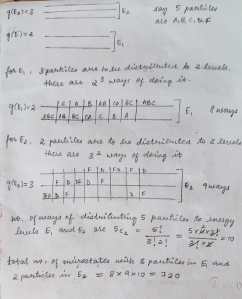 g(E₂)=3 ]E₂ say 5 particles
are A,B,C,D,F
g(E₁)=2 ]E₁
for E₁, 3 particles are to be distributed to 2 levels.
there are 2³ ways of doing it.
g(E₁)=2 A B AB ABC ] E₁ 8 ways
ABC C B A
for E₂, 2 particles are to be distributed to 3 levels
there are 3² ways of doing it
g(E₂)=3 ] E₂ 9 ways
no. of ways of distributing 5 particles to energy
levels E₁ and E₂ are 5C₂ = 5!/(3! 2!) = =10
total no. of microstates with 3 particles in E₁ and
2 particles in E₂ = 8 x 9 x 10 = 720